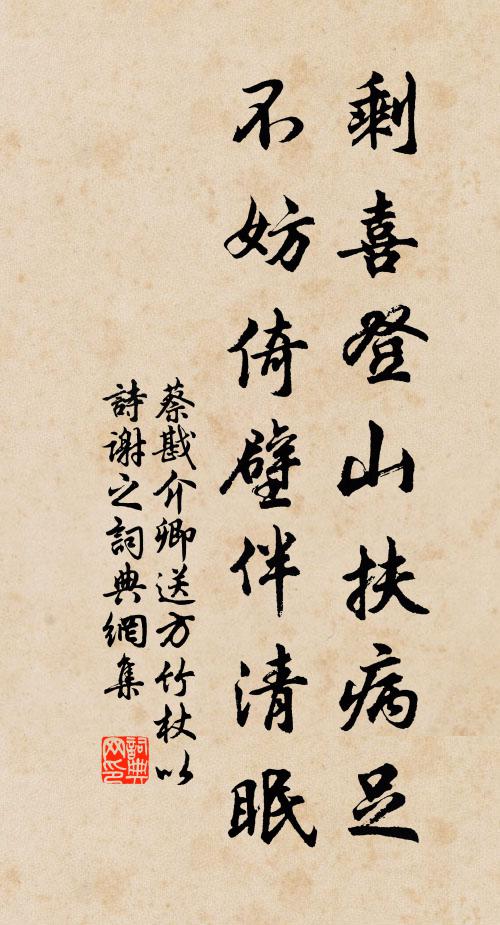 剩喜登山扶病足
不妨倚壁伴清眠
蔡戡介卿送方竹杖以
詩謝之詞典網集
詞典
网印